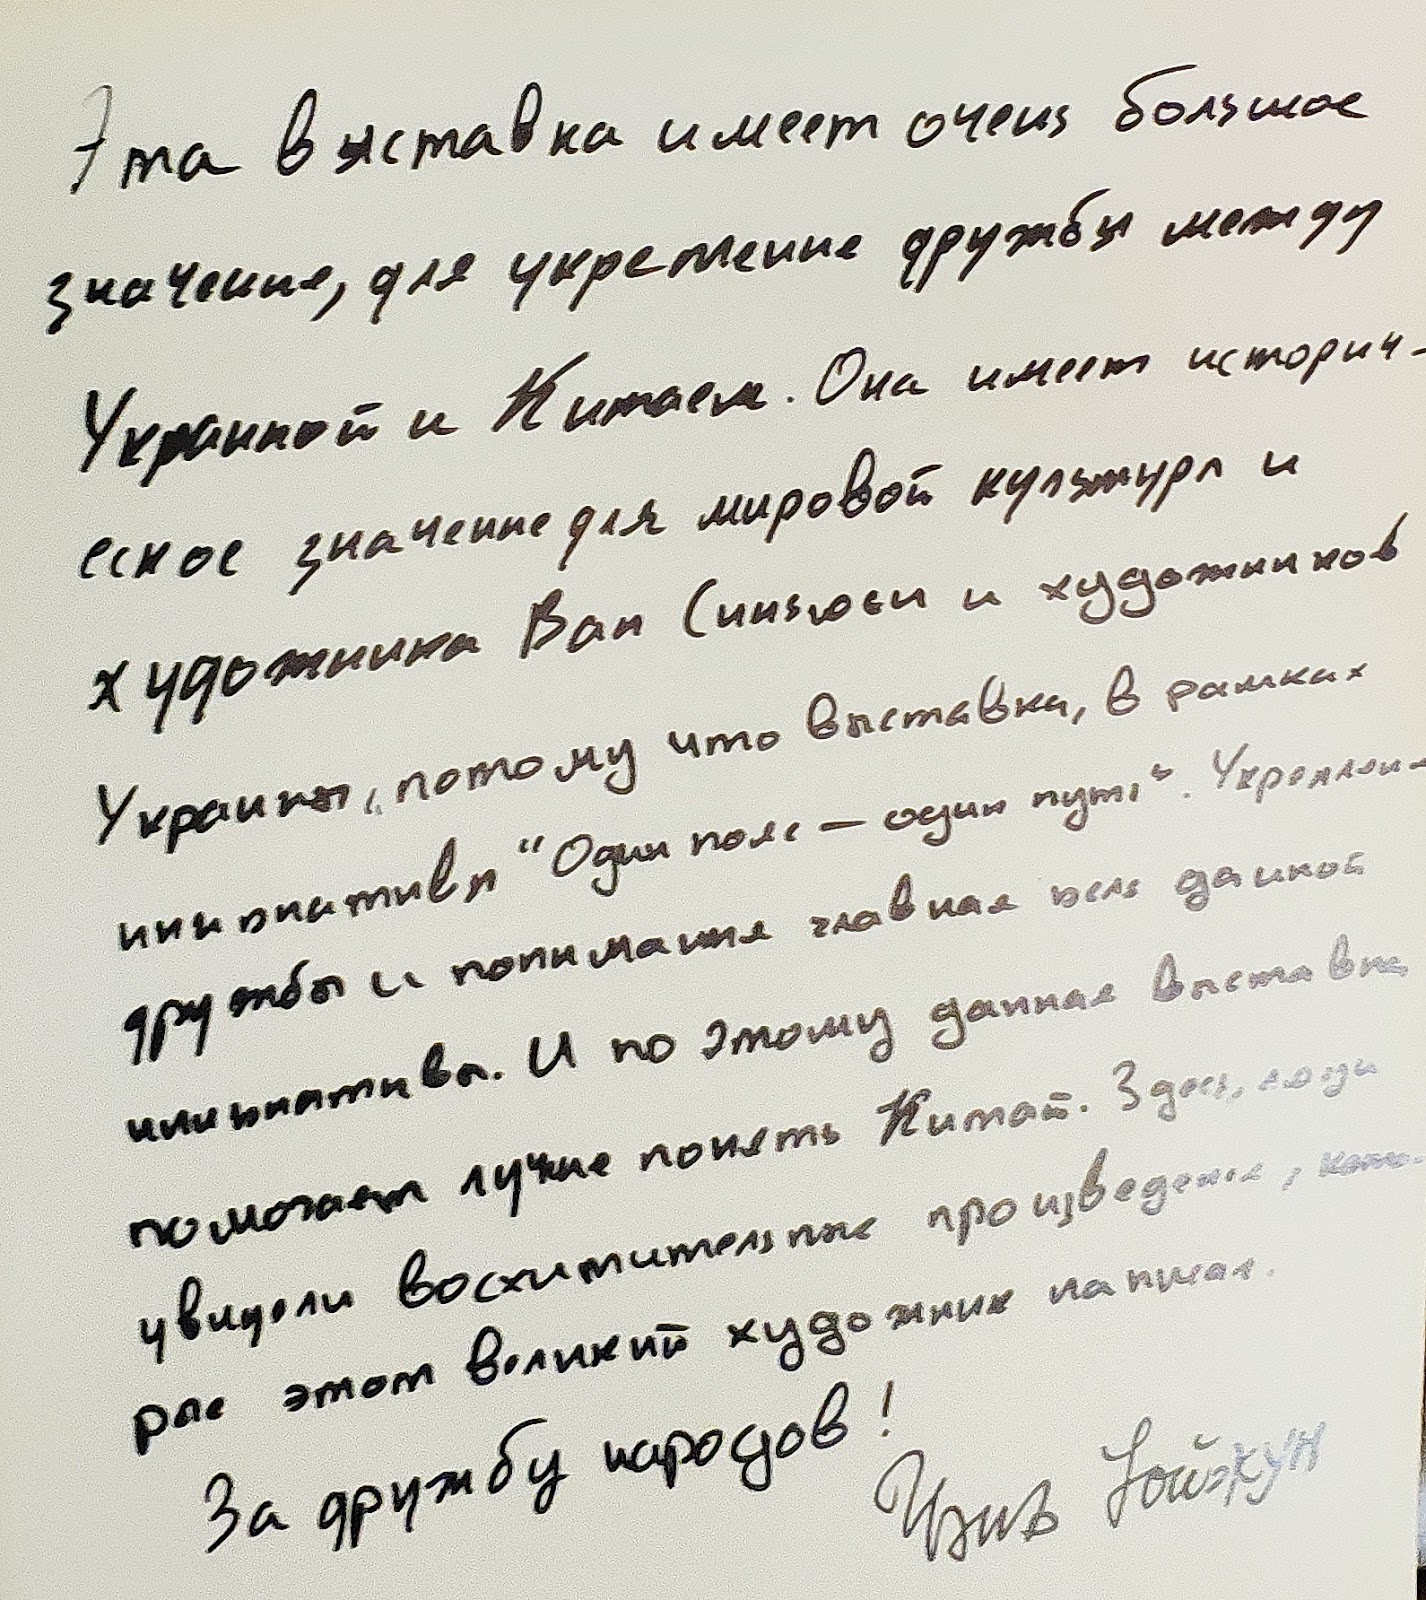 Эта выставка имеет очень большое
значение, для укрепление дружбы между
Украиной и Китаем. Она имеет историч-
еское значение для мировой культуры и
художника Ван Синьюи и художников
Украины, потому что выставка, в рамках
инициативы "Один пояс — один путь". Укреплени
дружбы и понимания главная цель данной
инициативы. И по этому данная выставка
помогает лучше понять Китай. Здесь, люди
увидели восхитительные произведения, кото-
рые этот великий художник написал.
За дружбу народов!